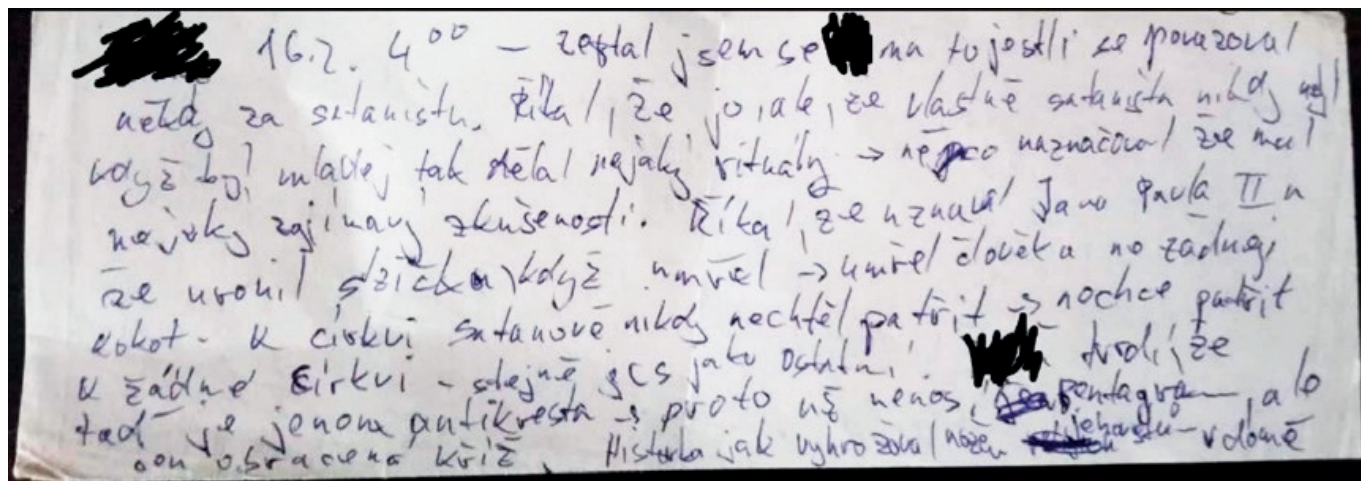 16.2. 4⁰⁰ – zeptal jsem se na to jestli se považoval
někdy za satanistu. Říkal, že jo, ale, že vlastně satanista nikdy nebyl
když byl mladej tak dělal nejaký rituály → něco naznačoval že měl
nejaky zajímavý zkušenosti. Říkal, že uznával Jana Pavla II a
že uronil slzičku, když umřel → umřel člověk a ne žádnej
kokot. K církvi satanově nikdy nechtěl patřit → nechce patřit
k žádné církvi – stejně jak ostatní. tvrdí, že
teď je jenom antikrista → proto už nenosí pentagram, ale
jen obracená kříž. Historka jak vyhrožoval nožem jehovistů v domě